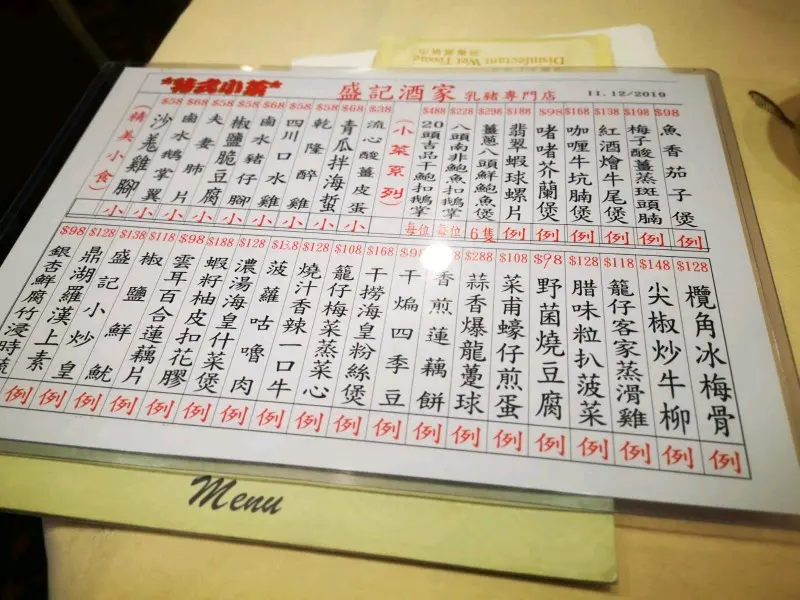 Disinfectant Wet Tissue
*特式小菜*
盛記酒家 乳豬專門店
11.12/2019
$98 魚香茄子煲 例
$198 梅子酸薑蒸斑頭腩 例
$138 紅酒燴牛尾煲 例
$168 咖喱牛坑腩煲 例
$98 啫啫芥蘭煲 例
$188 翡翠蝦球螺片 例
$298 薑蔥八頭鮮鮑魚煲 6隻
$228 八頭南非鮑魚扣鵝掌 每位
$488 20頭吉品干鮑扣鵝掌 每位
(小菜系列)
$38 流心酸薑皮蛋
$68 青瓜拌海蜇 小
$58 乾隆醉雞 小
$58 四川口水雞 小
$68 鹵水豬仔腳 小
$58 椒鹽脆豆腐 小
$58 夫妻肺片 小
$68 鹵水鵝掌翼 小
$58 沙羌雞腳 小
(精美小食)
$128 欖角冰梅骨 例
$148 尖椒炒牛柳 例
$118 籠仔客家蒸滑雞 例
$128 腊味粒扒菠菜 例
$98 野菌燒豆腐 例
$108 菜甫蠔仔煎蛋 例
$288 蒜香爆龍躉球 例
香煎蓮藕餅 例
干煸四季豆 例
$168 干撈海皇粉絲煲 例
$108 籠仔梅菜蒸菜心 例
$128 燒汁香辣一口牛 例
$138 菠蘿咕嚕肉 例
$128 濃湯海皇什菜煲 例
$188 蝦籽柚皮扣花膠 例
$98 雲耳百合蓮藕片 例
$118 椒鹽鮮魷 例
$138 盛記小炒皇 例
$128 鼎湖羅漢上素 例
$98 銀杏鮮腐竹浸時蔬 例
Menu